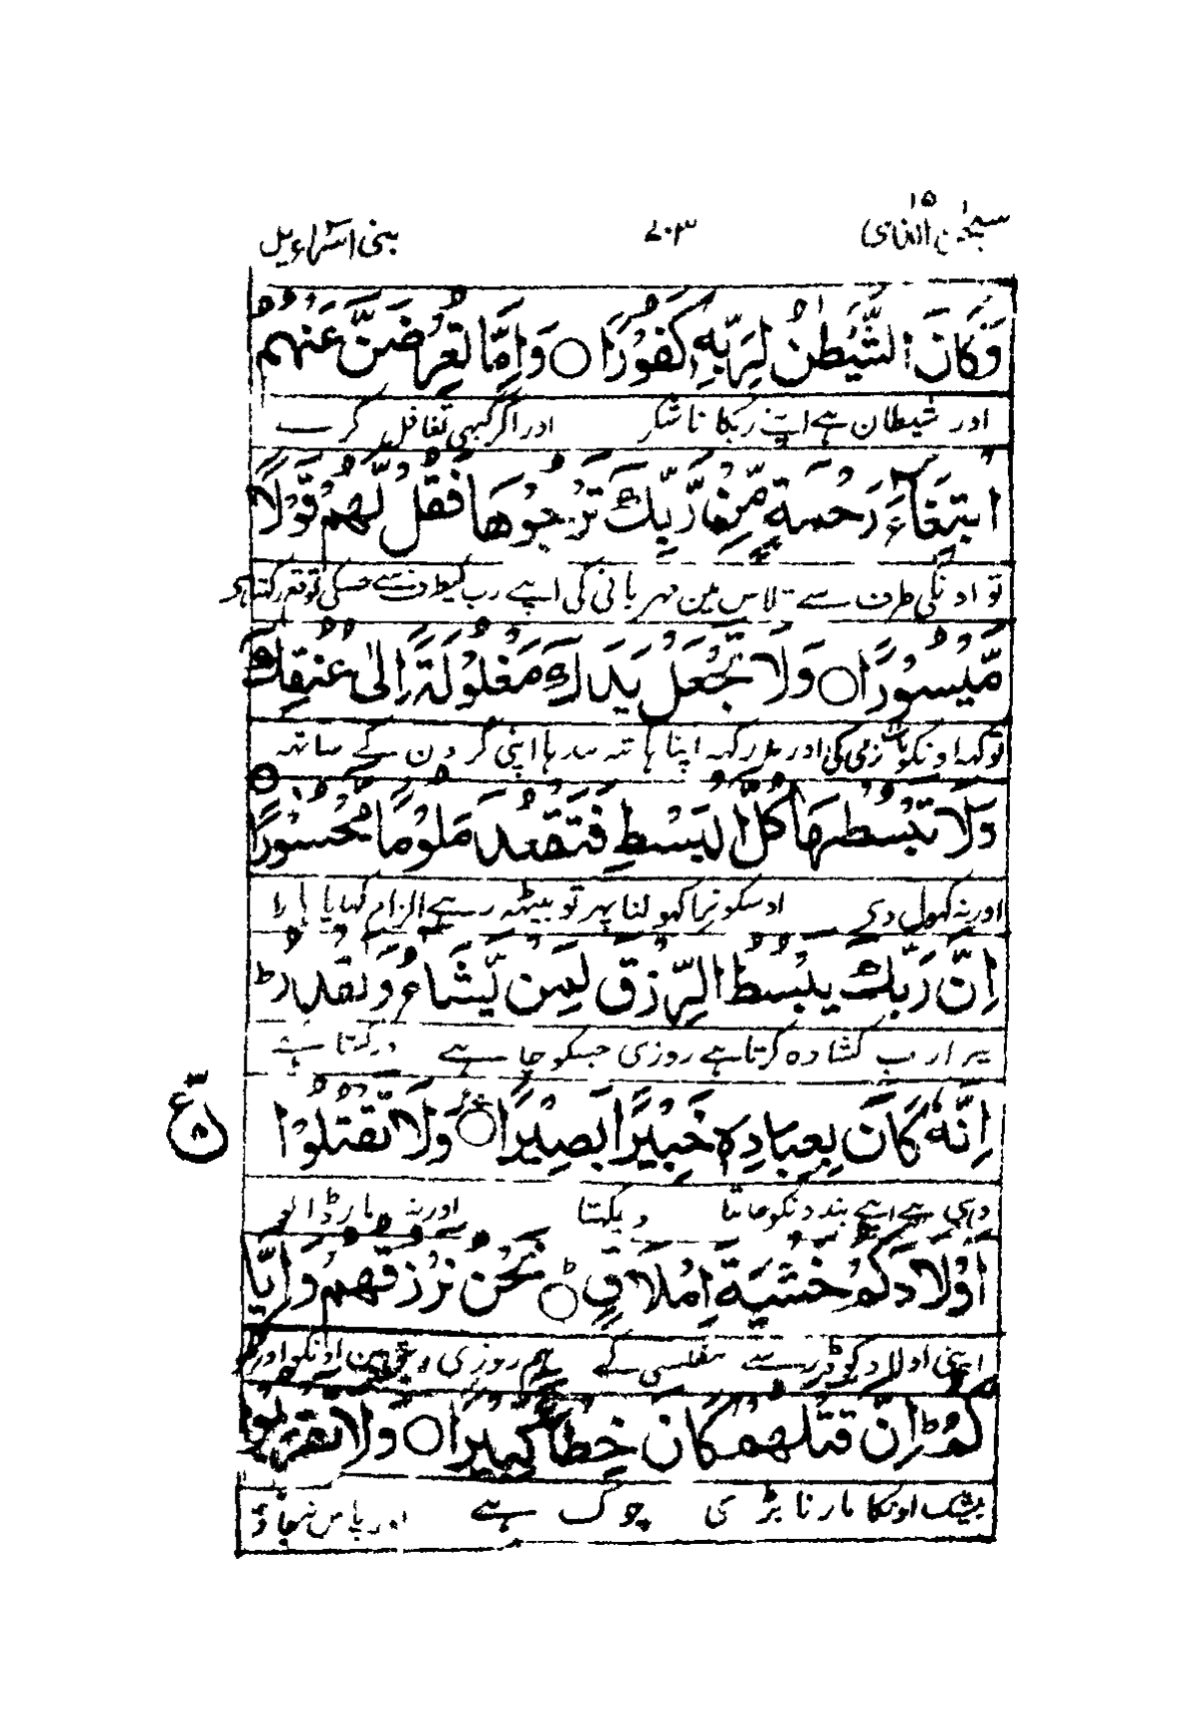 سبحٰن الذی ۱۵ ۷۰۳ بنی اسرآءیل
وَكَانَ الشَّيْطٰنُ لِرَبِّهٖ كَفُوْرًا ○ وَاِمَّا تُعْرِضَنَّ عَنْهُمُ
اور شیطان ہے اپنے رب کا ناشکر اور اگر کبھی تغافل کرے
ابْتِغَآءَ رَحْمَةٍ مِّنْ رَّبِّكَ تَرْجُوْهَا فَقُلْ لَّهُمْ قَوْلًا
تو اونکی طرف سے تلاش مین مہربانی کی اپنے رب کیطرف سے جسکی توقع رکھتا ہے
مَّيْسُوْرًا ○ وَلَا تَجْعَلْ يَدَكَ مَغْلُوْلَةً اِلٰى عُنُقِكَ
تو کہہ اونکو بات نرمی کی اور نہ رکھہ اپنا ہاتھہ بندہا اپنی گردن کے ساتھہ
وَلَا تَبْسُطْهَا كُلَّ الْبَسْطِ فَتَقْعُدَ مَلُوْمًا مَّحْسُوْرًا ○
اور نہ کھول دی اوسکو نرا کھولنا پھر تو بیٹھہ رہے الزام کھایا ہارا
اِنَّ رَبَّكَ يَبْسُطُ الرِّزْقَ لِمَنْ يَّشَآءُ وَيَقْدِرُ ط
تیرا رب کشادہ کرتا ہے روزی جسکو چاہے
اِنَّهٗ كَانَ بِعِبَادِهٖ خَبِيْرًا بَصِيْرًا ○ وَلَا تَقْتُلُوْا
وہی ہے اپنے بندونکو جانتا دیکھتا اور نہ مار ڈالو
اَوْلَادَكُمْ خَشْيَةَ اِمْلَاقٍ ○ نَحْنُ نَرْزُقُهُمْ وَاِيَّا
اپنی اولاد کو ڈر سے مفلسی کے ہم روزی دیتے ہین اونکو اور
كُمْ ط اِنَّ قَتْلَهُمْ كَانَ خِطْاً كَبِيْرًا ○ وَلَا تَقْرَبُوا
بیشک اونکا مارنا بڑی چوک ہے اور پاس نجاؤ
ع ۸